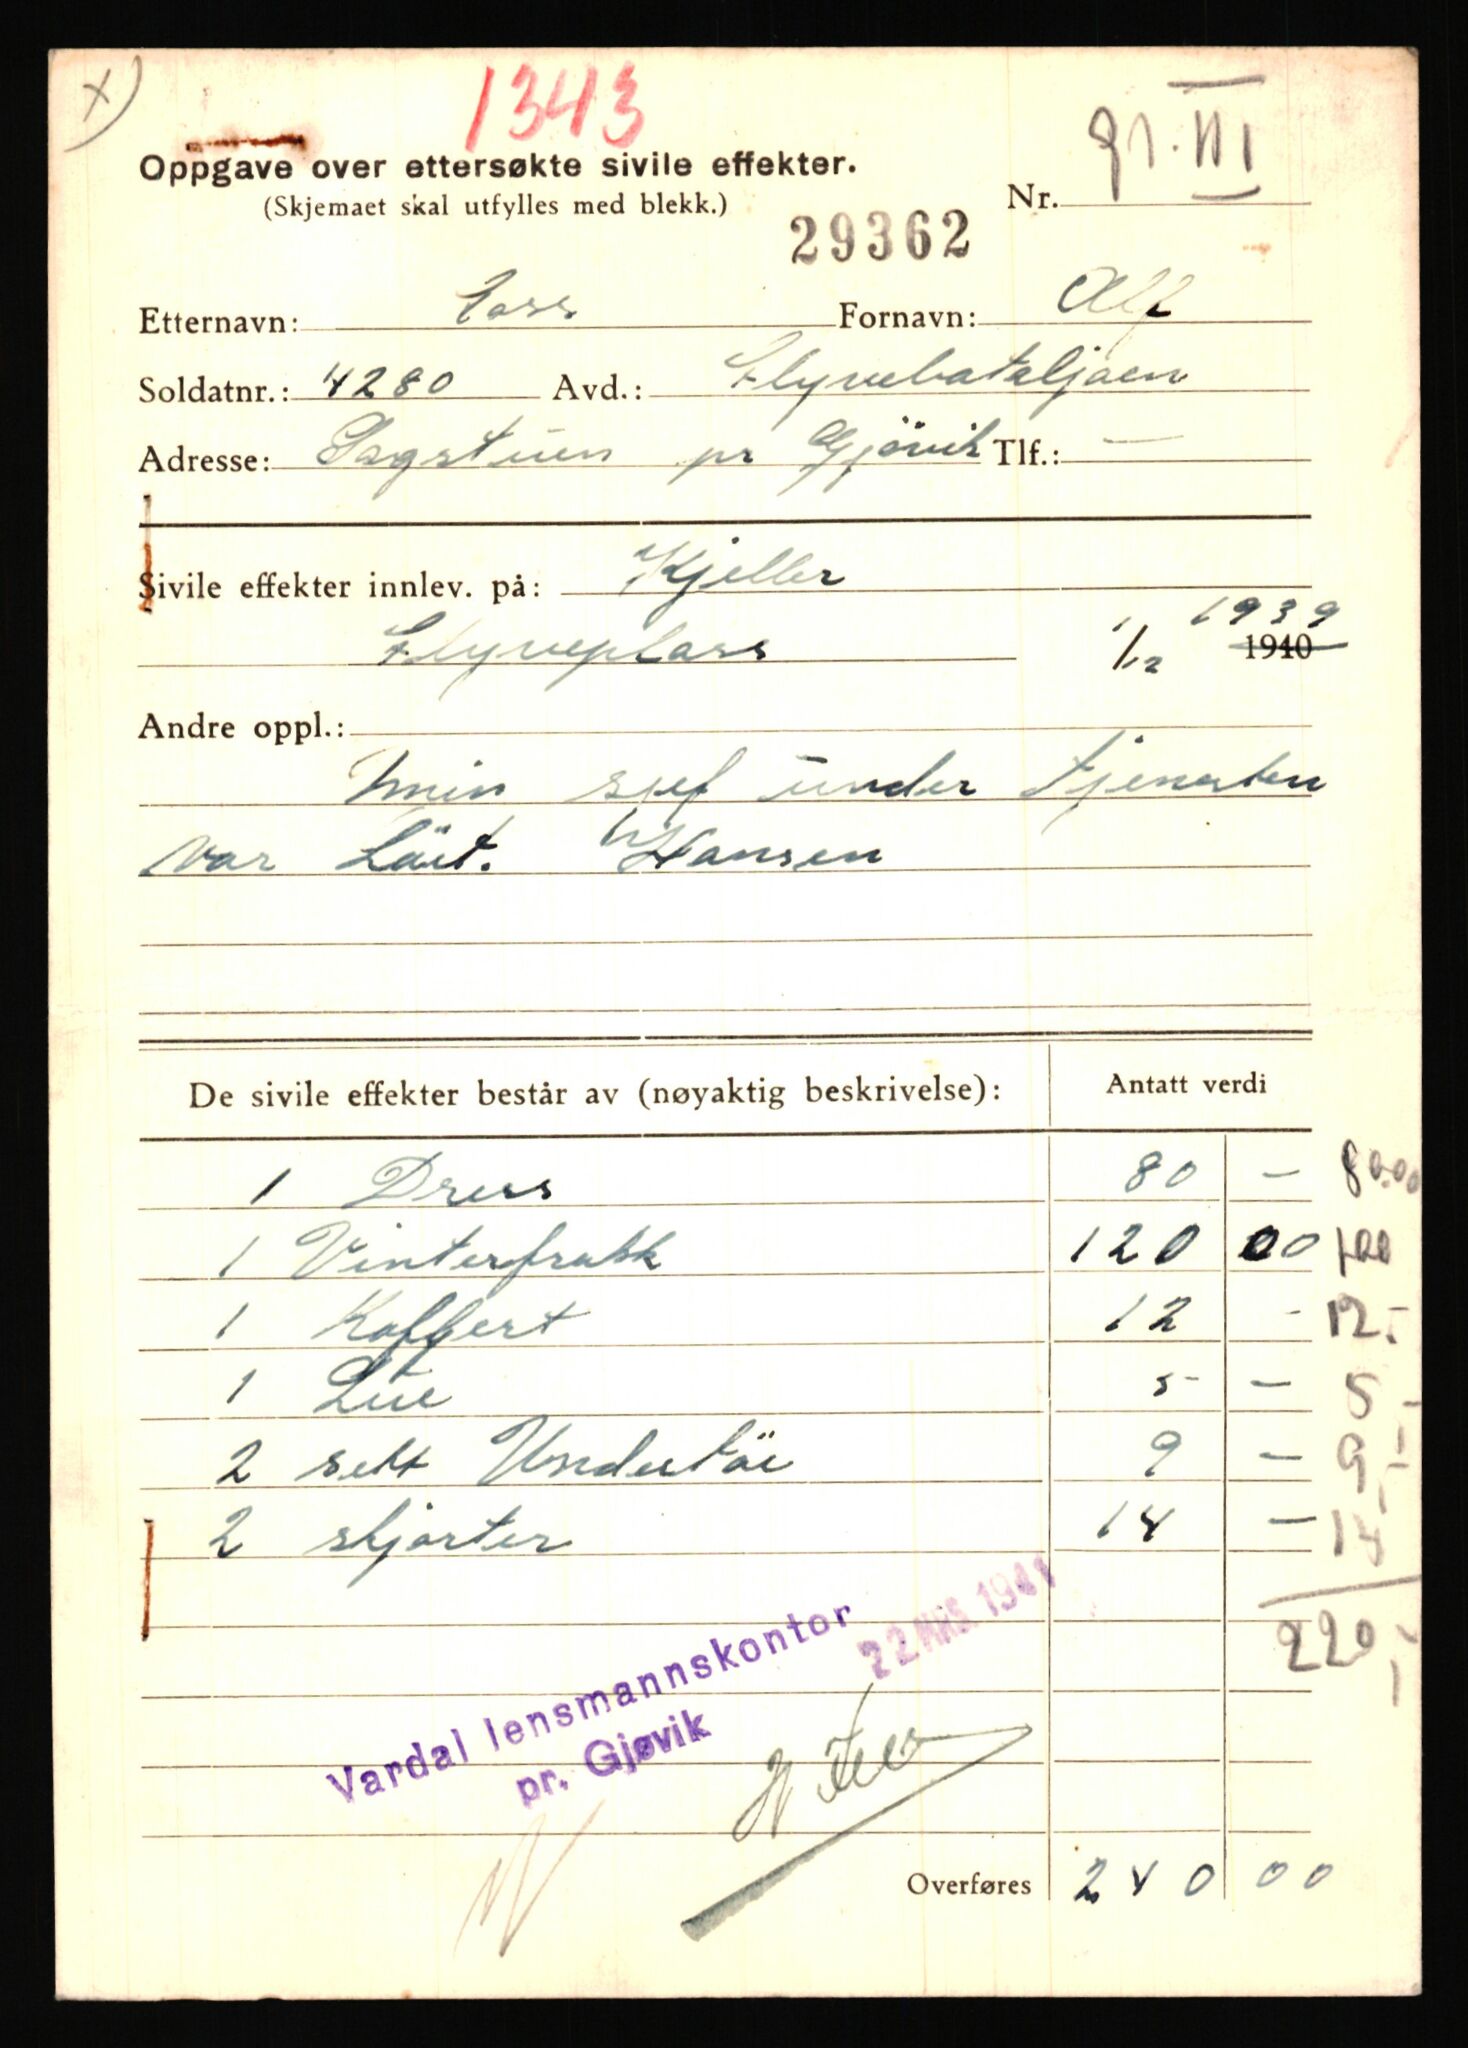 x)
1343
91. III
Oppgave over ettersøkte sivile effekter.
(Skjemaet skal utfylles med blekk.)
Nr.
29362
Etternavn: Fornavn: Alf
Soldatnr.: 4280 Avd.: Flyvebataljoen
Adresse: Sagstuen pr Gjövik Tlf.: —
Sivile effekter innlev. på: Kjeller
Flyveplass 1/12 1939 1940
Andre oppl.:
Min sjef under tjenesten
var Löit. Hansen
De sivile effekter består av (nøyaktig beskrivelse): Antatt verdi
1 Dress 80 — 80.00
1 Vinterfrakk 120 00 100
1 Koffert 12 - 12.-
1 Lue 5 — 5 -
2 sett Undertöi 9 — 9,-
2 skjorter 14 — 14
220,-
Vardal lensmannskontor
22 MRS. 1941
pr. Gjøvik
Overføres 240 00